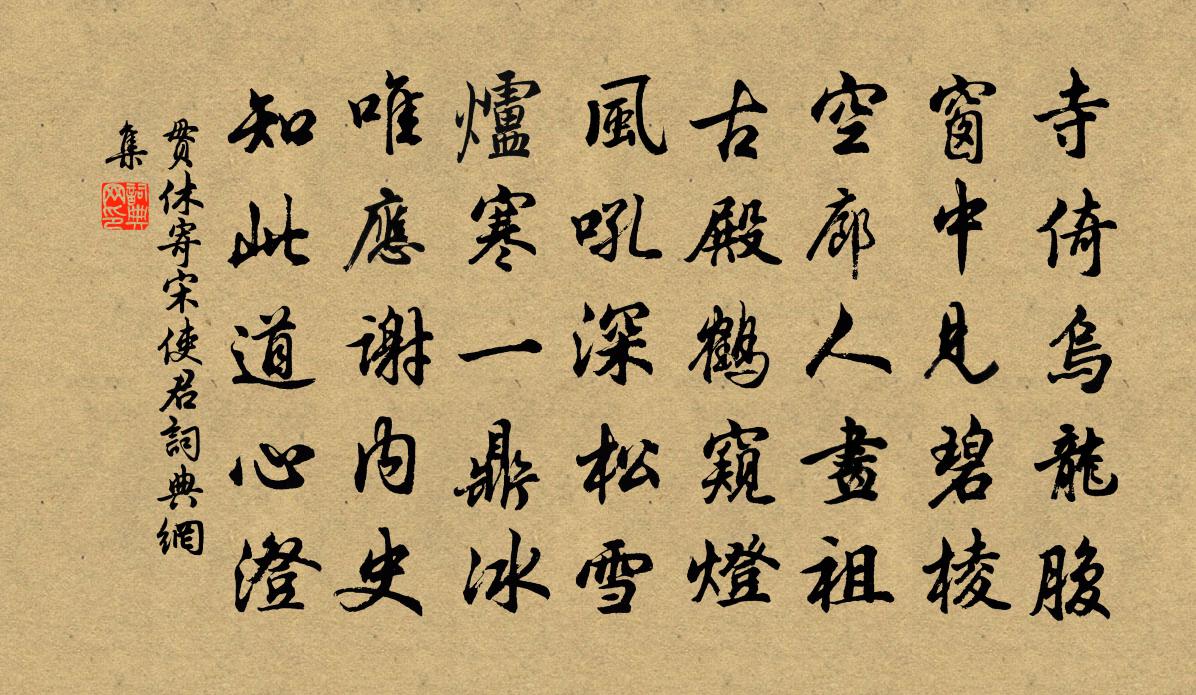 寺倚烏龍腹
窗中見碧棱
空廊人畫祖
古殿鶴窺燈
風吼深松雪
爐寒一鼎冰
唯應謝内史
知此道心澄
貫休寄宋使君詞典網
集
詞典
网印